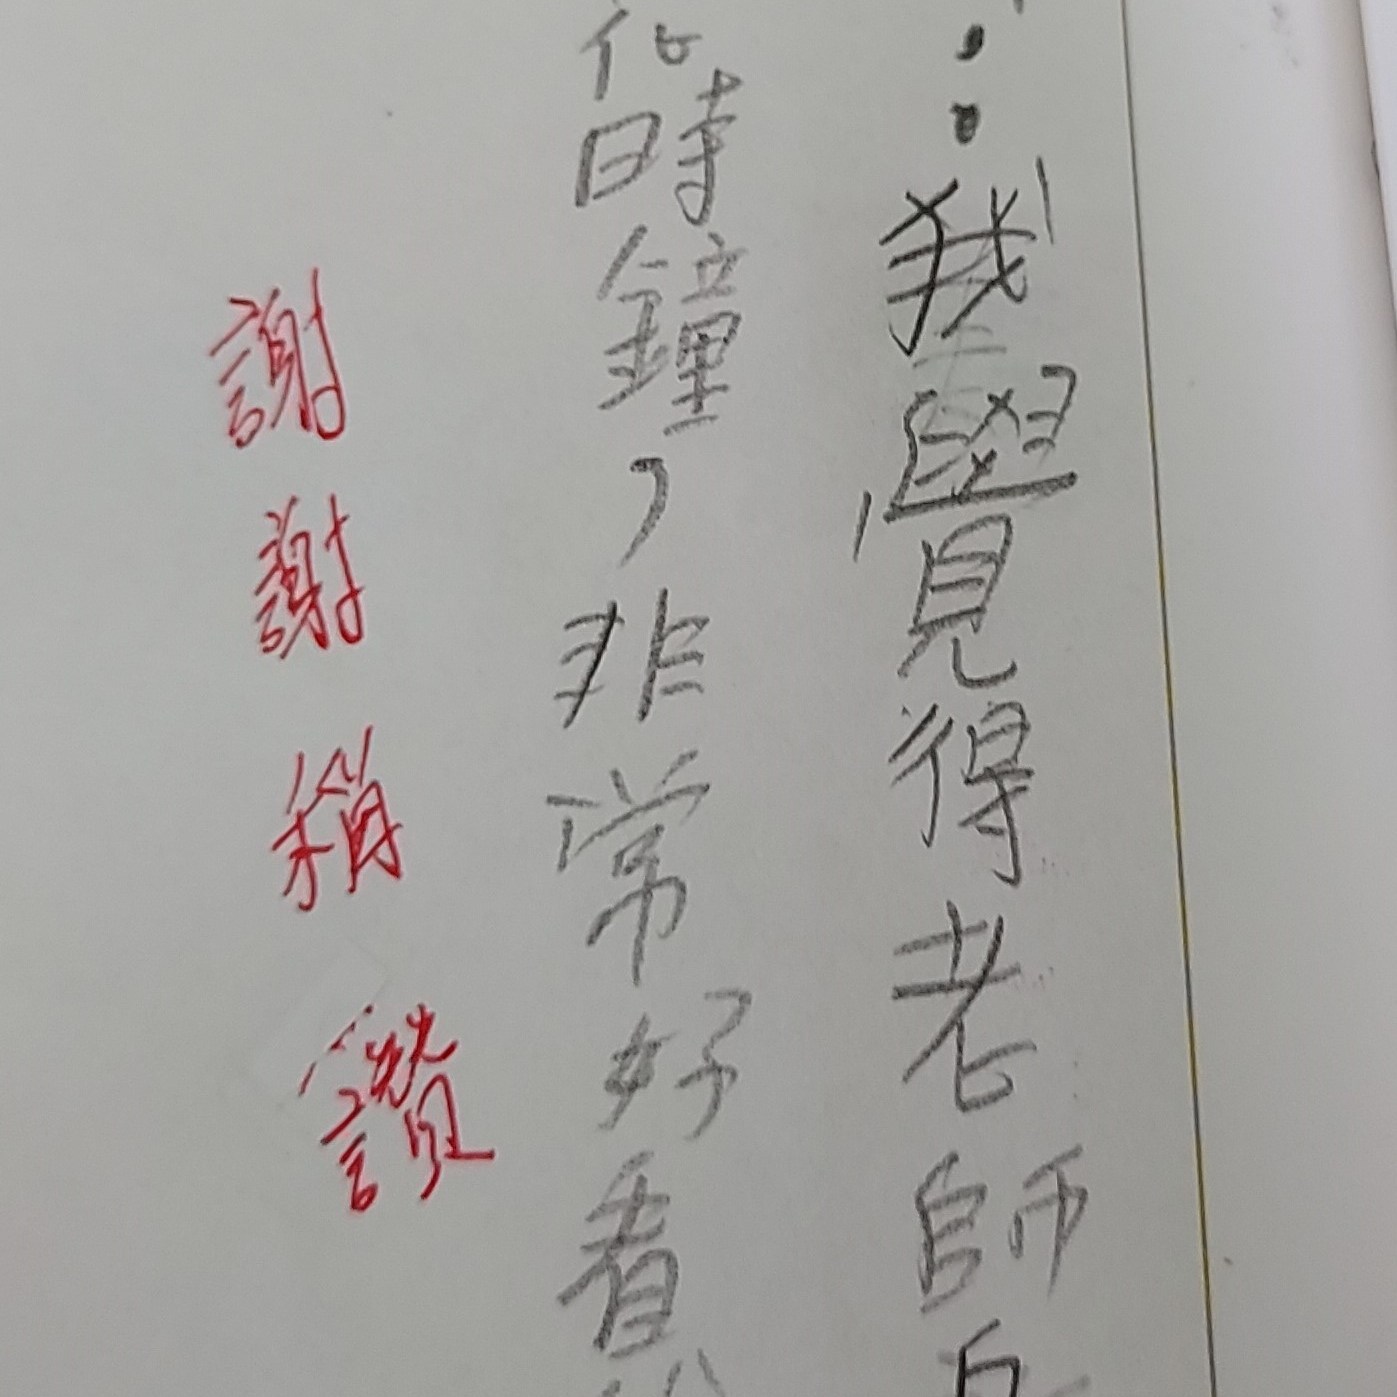 ：我覺得老師
時鐘，非常好看
謝謝稱讚